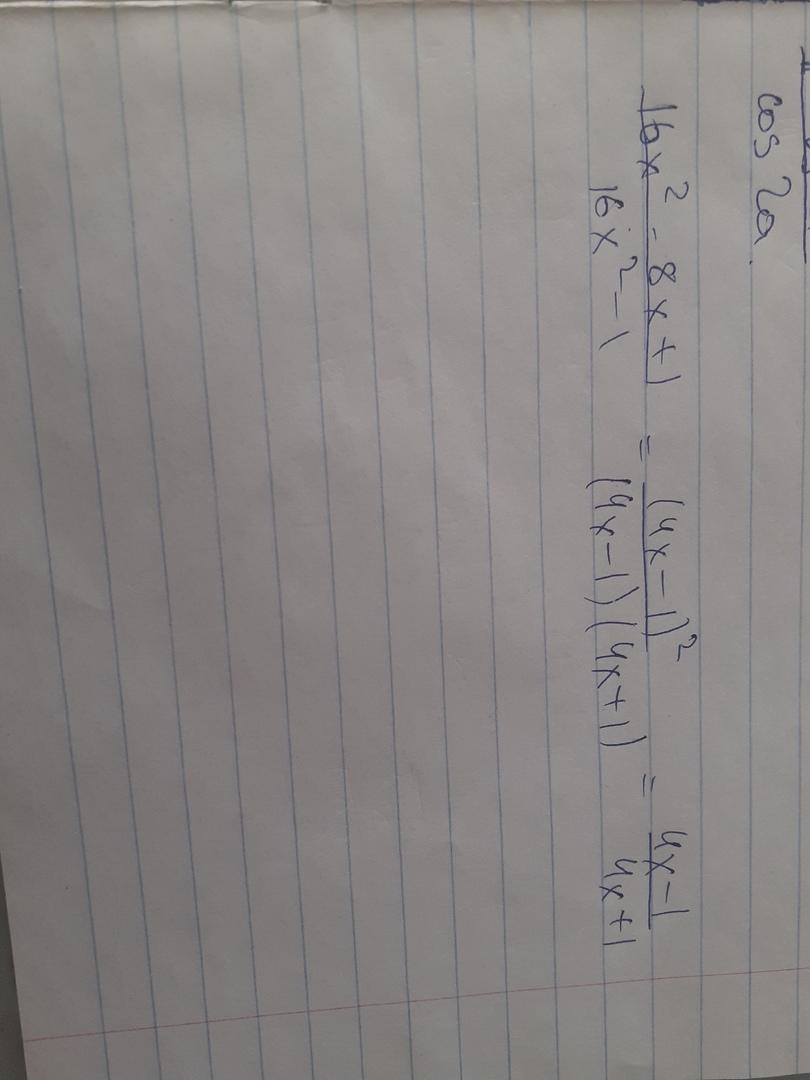 cos 2a.
16x² - 8x + 1 / 16x² - 1 = (4x - 1)² / (4x - 1)(4x + 1) = 4x - 1 / 4x + 1